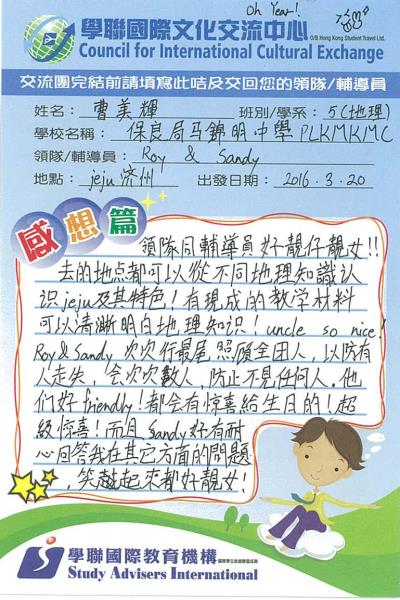 Oh Year!
學聯國際文化交流中心
O/B Hong Kong Student Travel Ltd.
Council for International Cultural Exchange
交流團完結前請填寫此咭及交回您的領隊/輔導員
姓名： 曹美輝 班別/學系： 5(地理)
學校名稱： 保良局马錦明中學 PLKMKMC
領隊/輔導員： Roy & Sandy
地點： jeju 济州 出發日期： 2016.3.20
感想篇
領隊同輔導員好靚仔靚女!!
去的地点都可以從不同地理知識认
识jeju及其特色！有現成的教学材料
可以清晰明白地理知识！uncle so nice!
Roy & Sandy 次次行最尾照顾全团人，以防有
人走失，会次次數人，防止不見任何人。他
们好friendly！都会有惊喜給生日的！超
級惊喜！而且Sandy好有耐
心回答我在其它方面的問題
，笑起來都好靚女！
學聯國際教育機構
Study Advisers International